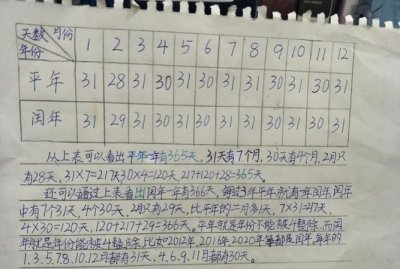 天数 月份
年份 1 2 3 4 5 6 7 8 9 10 11 12
平年 31 28 31 30 31 30 31 31 30 31 30 31
闰年 31 29 31 30 31 30 31 31 30 31 30 31
从上表可以看出平年一年有365天，31天有7个月，30天有4个月，2月只
有28天，31×7=217天30×4=120天，217+120+28=365天。
还可以通过上表看出闰年一年有366天，每过3年平年就有一年闰年，闰年
中有7个31天，4个30天，2月只有29天，比平年的二月多1天，7×31=217天，
4×30=120天，120+217+29=366天。平年就是年份不能被4整除，而闰
年就是年份能被4整除，比如2012年，2016年，2020年等都是闰年，每年的
1.3.5.7.8.10.12月都有31天，4.6.9.11月都有30天。